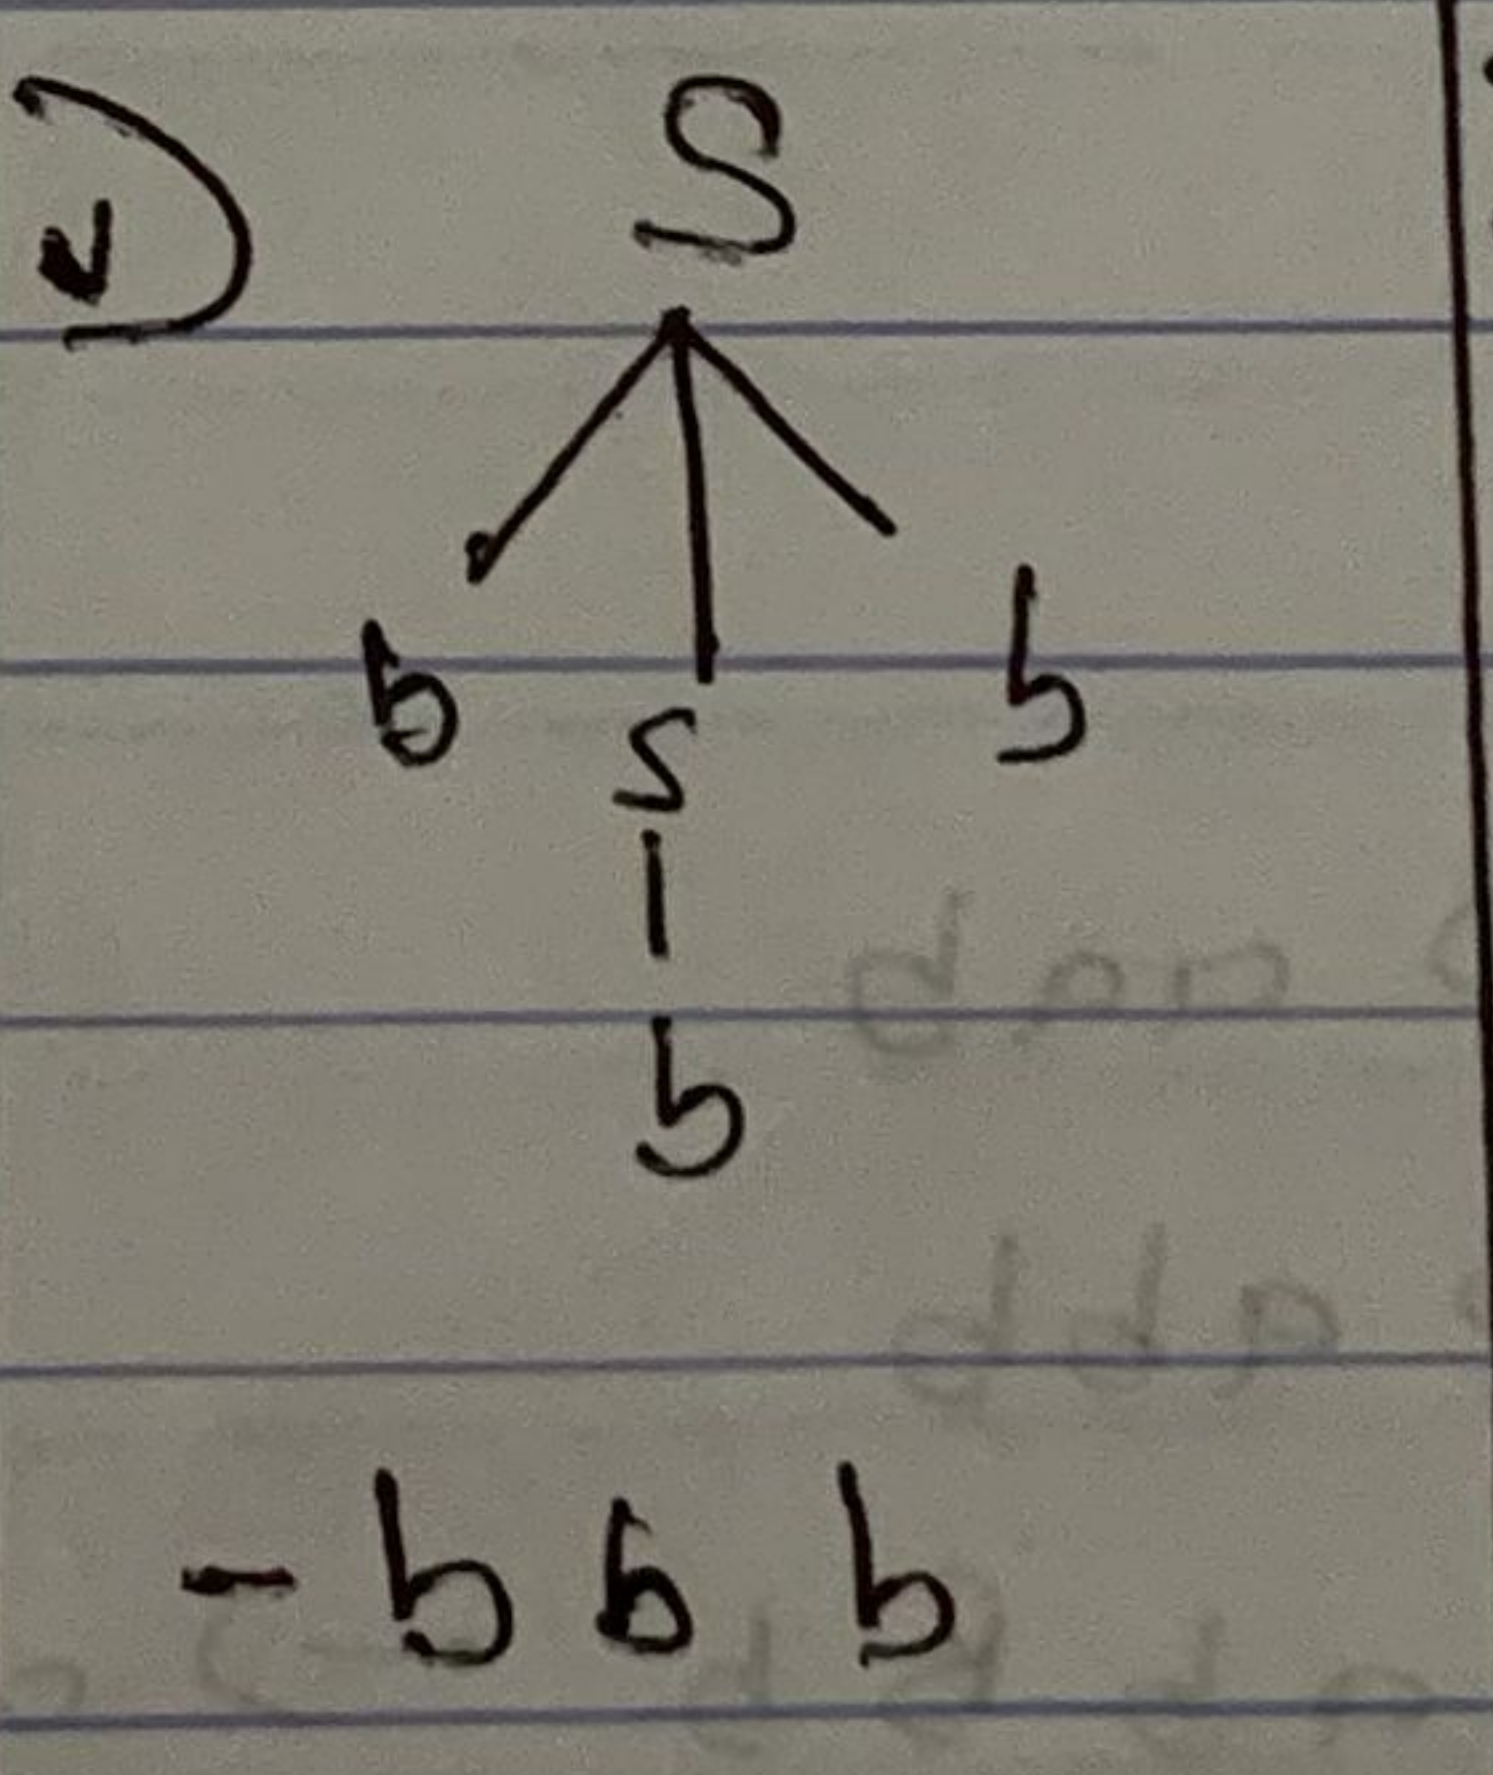 S
b s b
b
- b b b